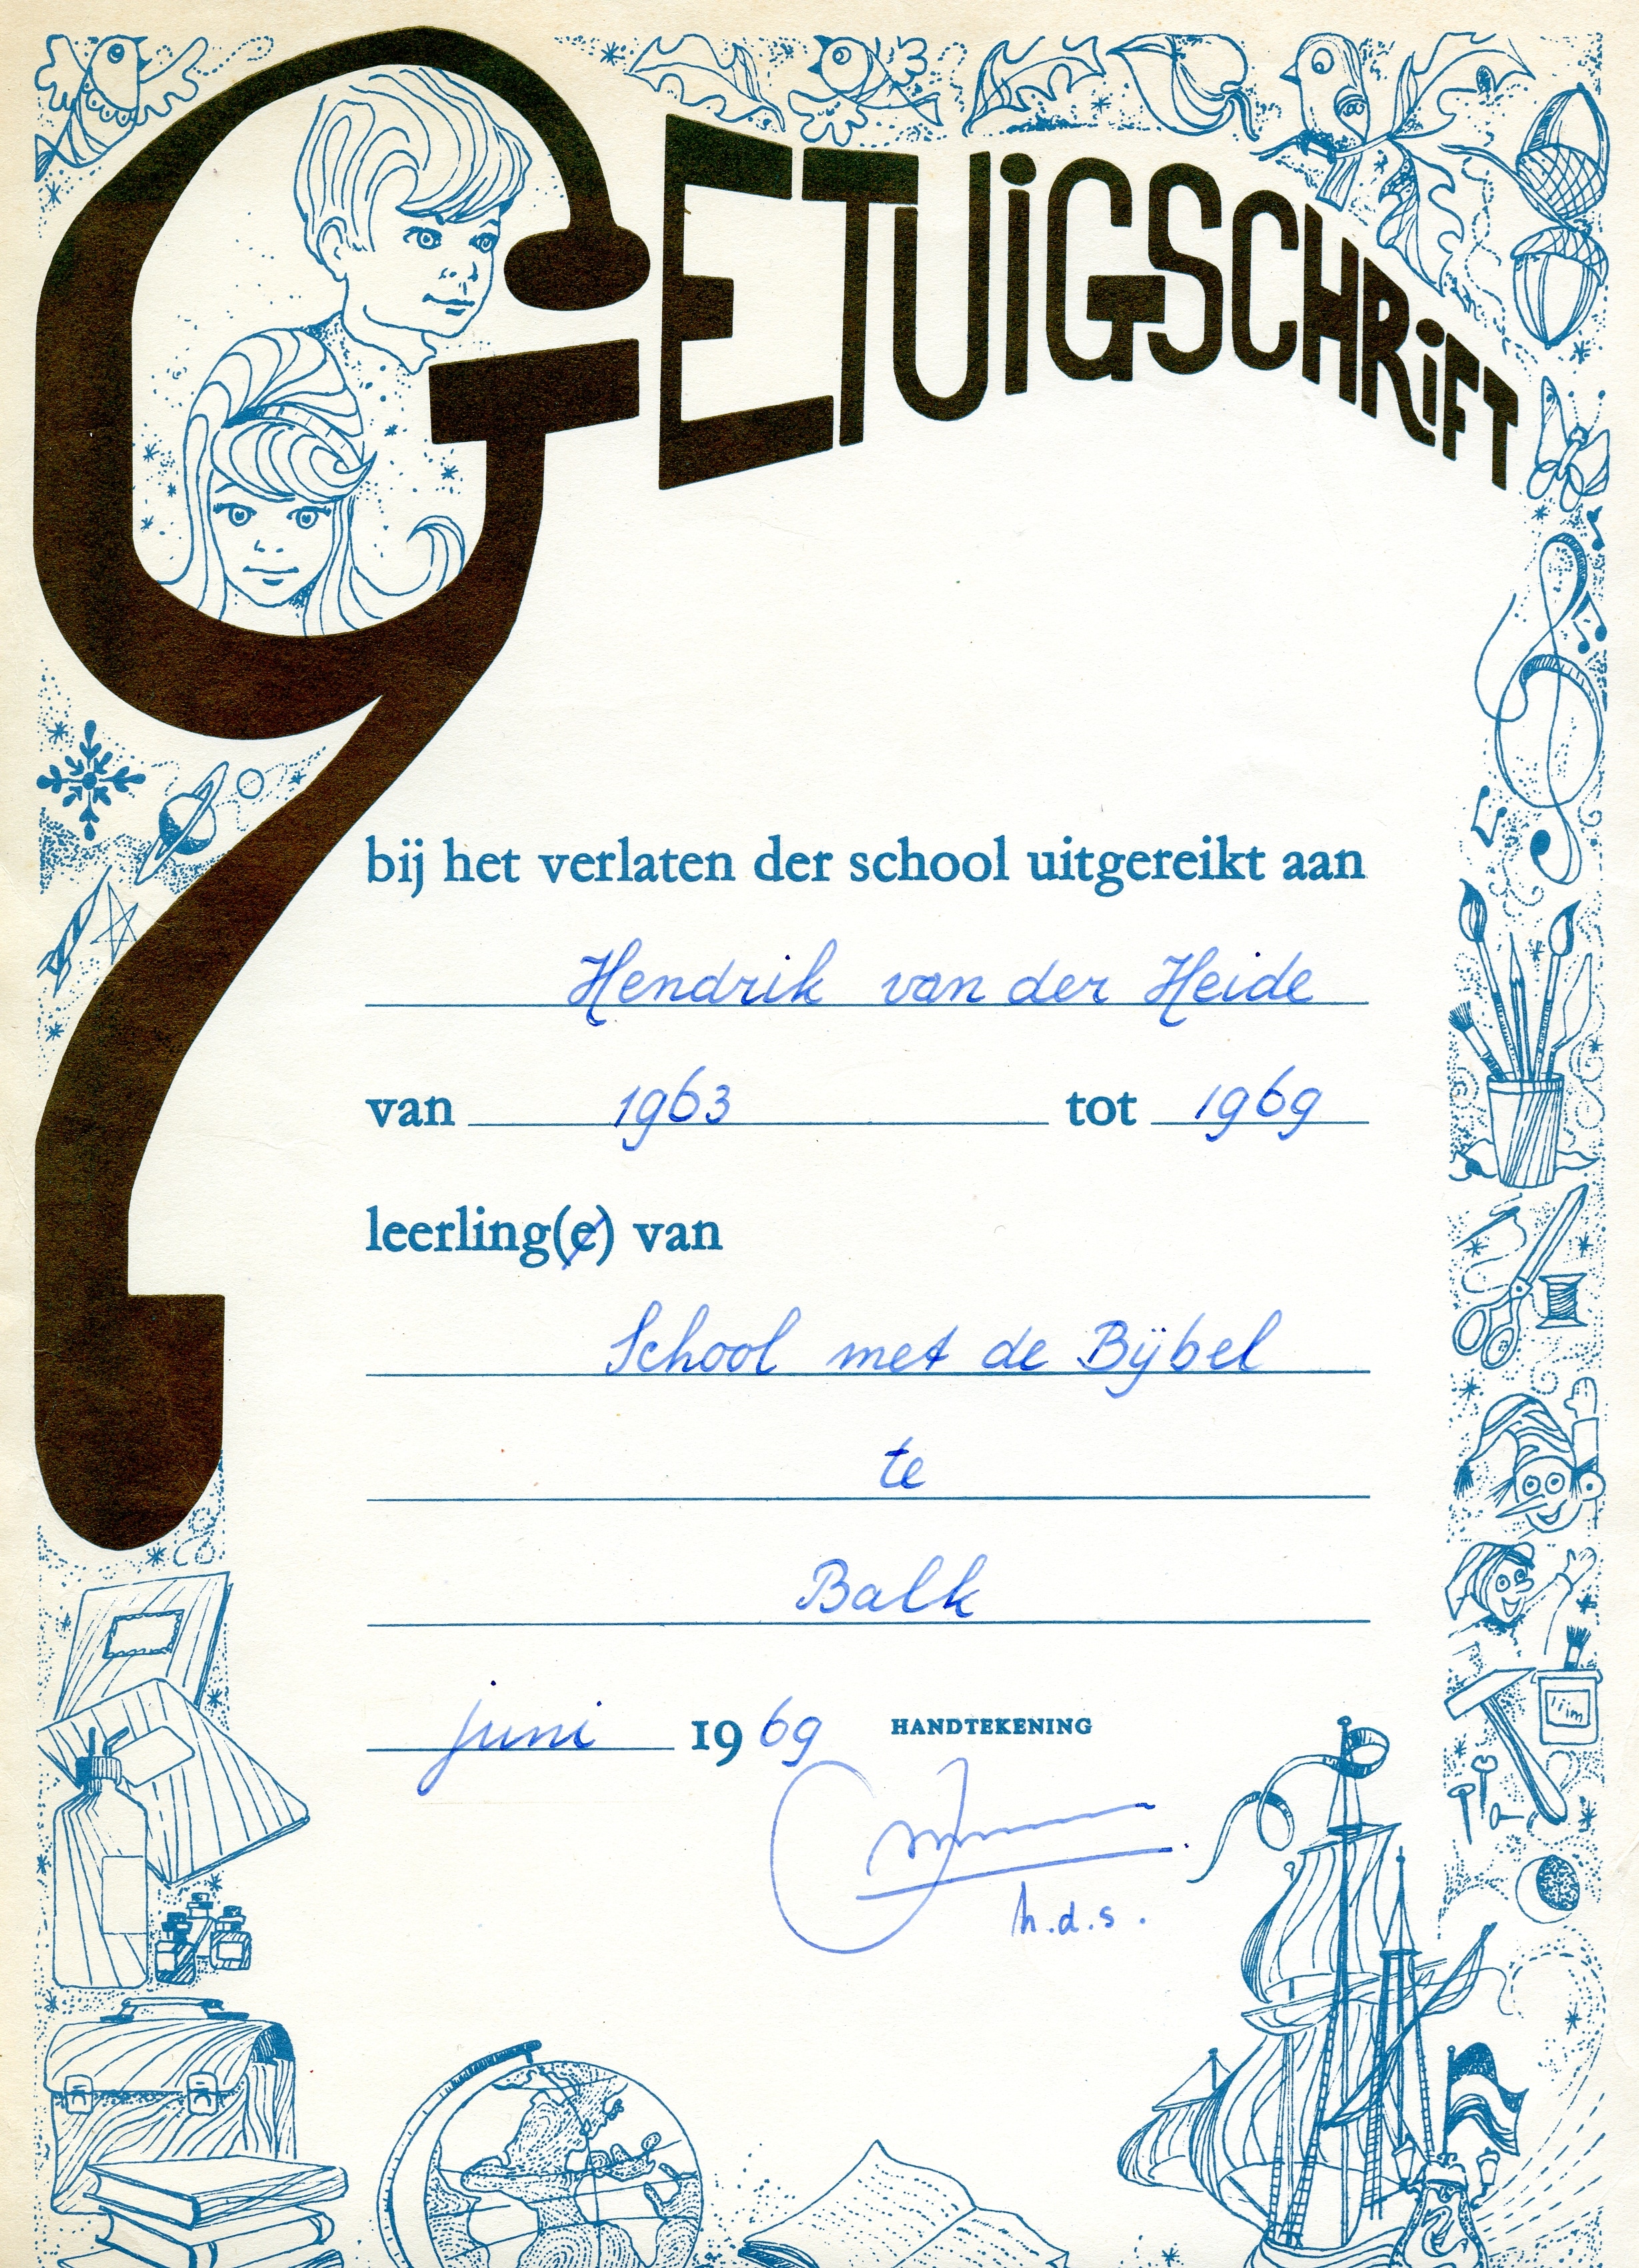 GETUIGSCHRIFT
bij het verlaten der school uitgereikt aan
Hendrik van der Heide
van 1963 tot 1969
leerling(e) van
School met de Bijbel
te
Balk
juni 1969 HANDTEKENING
h.d.s.
lijm